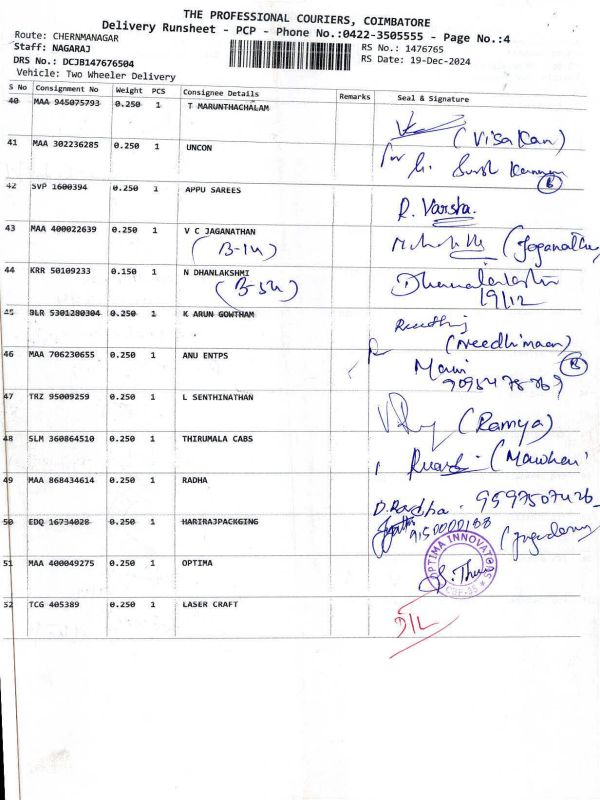 THE PROFESSIONAL COURIERS, COIMBATORE
Delivery Runsheet - PCP - Phone No.:0422-3505555 - Page No.:4
Route: CHERNMANAGAR
Staff: NAGARAJ
RS No.: 1476765
DRS No.: DCJB147676504
RS Date: 19-Dec-2024
Vehicle: Two Wheeler Delivery
S No Consignment No Weight PCS Consignee Details Remarks Seal & Signature
40 MAA 945075793 0.250 1 T MARUNTHACHALAM
(Visakan)
41 MAA 302236285 0.150 1 UNCON
for
B
42 SVP 1600394 0.250 1 APPU SAREES
R. Varsha.
43 MAA 400022639 0.250 1 V C JAGANATHAN
(B-14)
44 KRR 50109233 0.150 1 N DHANLAKSHMI
(B-54)
19/12
45 BLR 5301280304 0.250 1 K ARUN GOWTHAM
46 MAA 706230655 0.250 1 ANU ENTPS
B
Mani
47 TRZ 95009259 0.250 1 L SENTHINATHAN
(Ramya)
48 SLM 360864510 0.250 1 THIRUMALA CABS
49 MAA 868434614 0.250 1 RADHA
D. Radha. 9597507426
50 EDQ 16734028 0.250 1 HARIRAJPACKGING
9150000188
51 MAA 400049275 0.250 1 OPTIMA
OPTIMA INNOVATORS
CBE-35
52 TCG 405389 0.250 1 LASER CRAFT
D/L